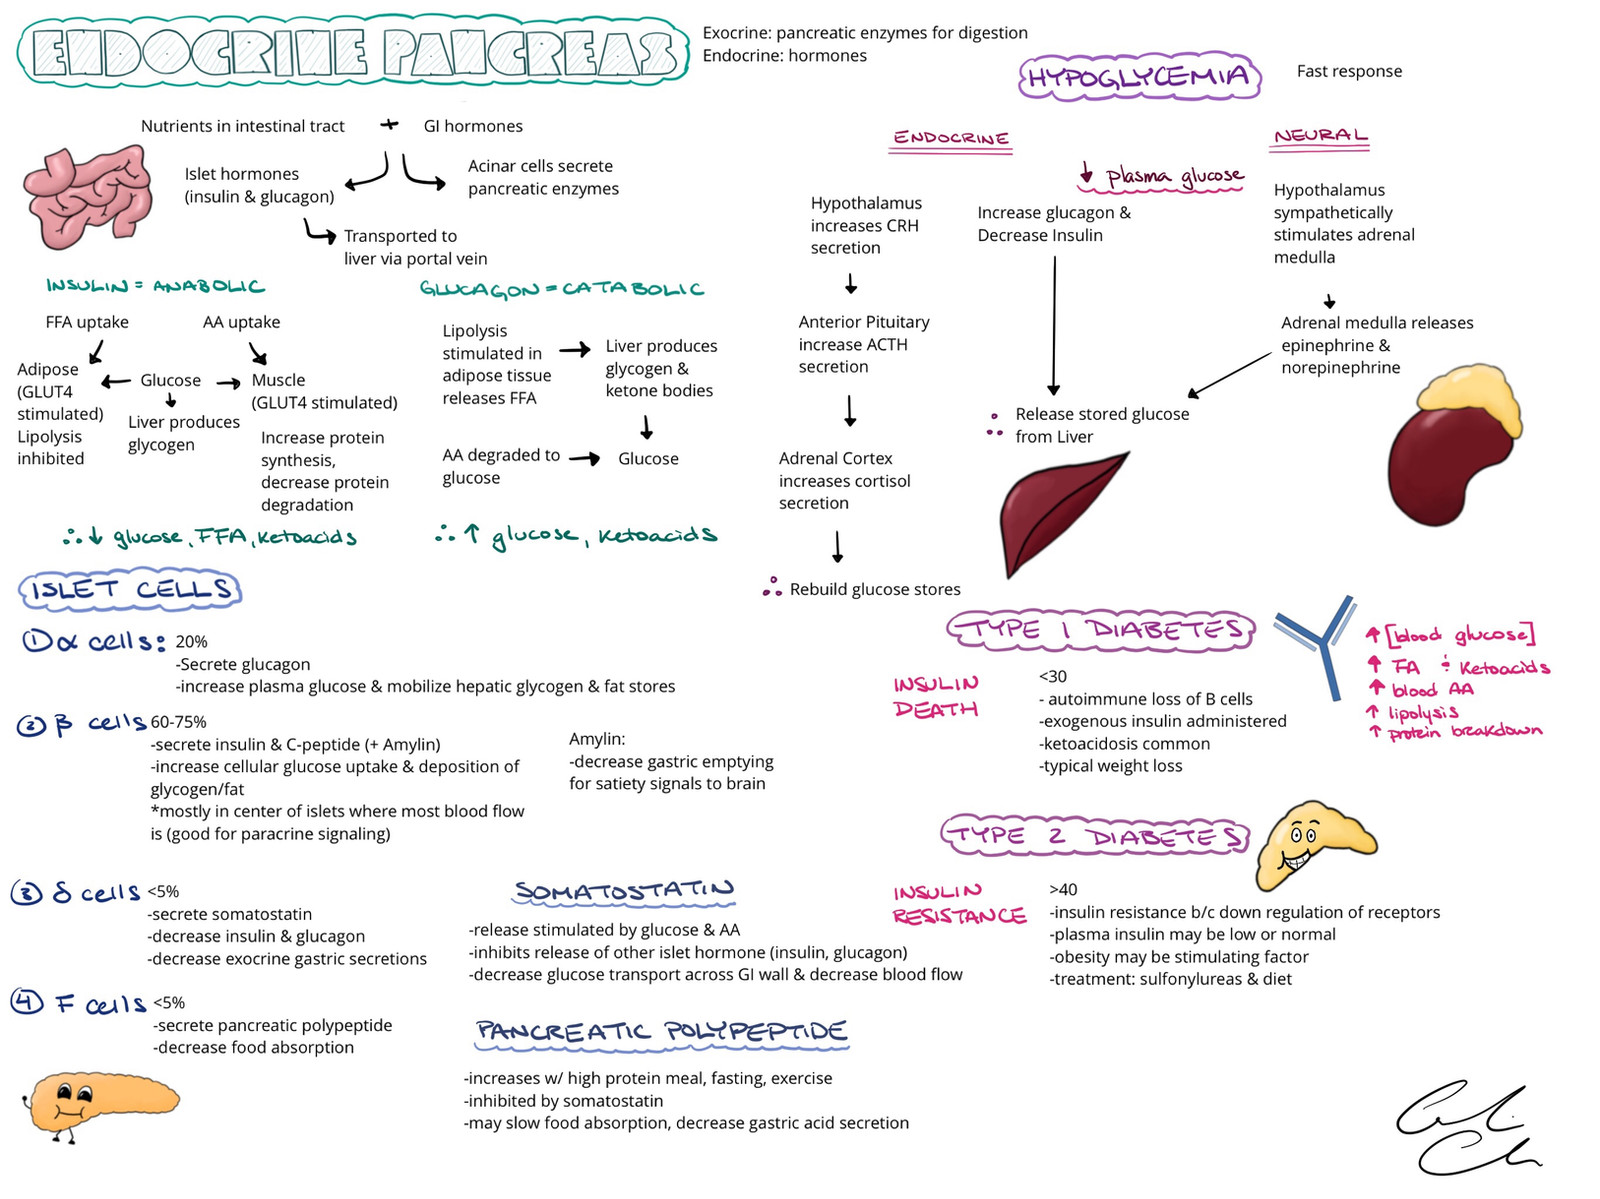 ENDOCRINE PANCREAS
Exocrine: pancreatic enzymes for digestion
Endocrine: hormones
Nutrients in intestinal tract + GI hormones
Islet hormones
(insulin & glucagon)
Acinar cells secrete
pancreatic enzymes
Transported to
liver via portal vein
INSULIN = ANABOLIC
FFA uptake
AA uptake
Adipose
(GLUT4
stimulated)
Lipolysis
inhibited
Glucose
Liver produces
glycogen
Muscle
(GLUT4 stimulated)
Increase protein
synthesis,
decrease protein
degradation
∴ ↓ glucose, FFA, ketoacids
GLUCAGON = CATABOLIC
Lipolysis
stimulated in
adipose tissue
releases FFA
Liver produces
glycogen &
ketone bodies
AA degraded to
glucose
Glucose
∴ ↑ glucose, ketoacids
HYPOGLYCEMIA
Fast response
ENDOCRINE
NEURAL
↓ plasma glucose
Hypothalamus
increases CRH
secretion
Anterior Pituitary
increase ACTH
secretion
Adrenal Cortex
increases cortisol
secretion
∴ Rebuild glucose stores
Increase glucagon &
Decrease Insulin
∴ Release stored glucose
from Liver
Hypothalamus
sympathetically
stimulates adrenal
medulla
Adrenal medulla releases
epinephrine &
norepinephrine
ISLET CELLS
① α cells: 20%
-Secrete glucagon
-increase plasma glucose & mobilize hepatic glycogen & fat stores
② β cells 60-75%
-secrete insulin & C-peptide (+ Amylin)
-increase cellular glucose uptake & deposition of
glycogen/fat
*mostly in center of islets where most blood flow
is (good for paracrine signaling)
Amylin:
-decrease gastric emptying
for satiety signals to brain
③ δ cells <5%
-secrete somatostatin
-decrease insulin & glucagon
-decrease exocrine gastric secretions
④ F cells <5%
-secrete pancreatic polypeptide
-decrease food absorption
SOMATOSTATIN
-release stimulated by glucose & AA
-inhibits release of other islet hormone (insulin, glucagon)
-decrease glucose transport across GI wall & decrease blood flow
PANCREATIC POLYPEPTIDE
-increases w/ high protein meal, fasting, exercise
-inhibited by somatostatin
-may slow food absorption, decrease gastric acid secretion
TYPE 1 DIABETES
INSULIN
DEATH
<30
- autoimmune loss of B cells
-exogenous insulin administered
-ketoacidosis common
-typical weight loss
↑ [blood glucose]
↑ FA & ketoacids
↑ blood AA
↑ lipolysis
↑ protein breakdown
TYPE 2 DIABETES
INSULIN
RESISTANCE
>40
-insulin resistance b/c down regulation of receptors
-plasma insulin may be low or normal
-obesity may be stimulating factor
-treatment: sulfonylureas & diet